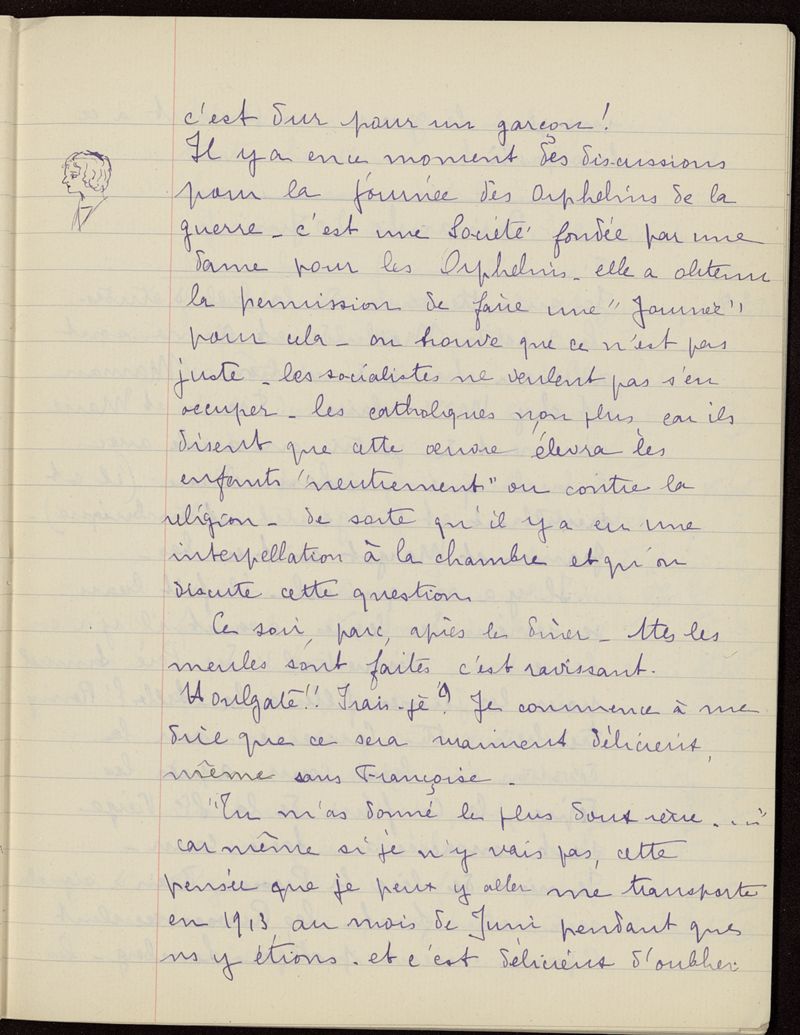 c'est dur pour un garçon !
Il y a en ce moment des discussions
pour la journée des Orphelins de la
guerre _ c'est une Société fondée par une
dame pour les Orphelins _ elle a obtenu
la permission de faire une "Journée"
pour cela _ on trouve que ce n'est pas
juste _ les socialistes ne veulent pas s'en
occuper _ les catholiques non plus car ils
disent que cette œuvre élevra les
enfants "neutrement" ou contre la
religion _ de sorte qu'il y a eu une
interpellation à la chambre et qu'on
discute cette question.
Ce soir, parc, après le dîner _ ttes les
meules sont faites c'est ravissant.
Houlgate !! Irais-je ? Je commence à me
dire que ce sera vraiment délicieux,
même sans Françoise _
"Tu m'as donné le plus doux rêve ...."
car même si je n'y vais pas, cette
pensée que je peux y aller me transporte
en 1913 au mois de Juin pendant que
ns y étions _ et c'est délicieux d'oublier